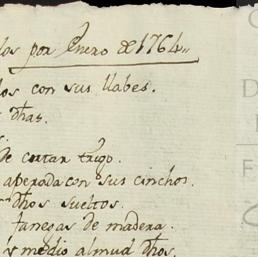 los por Enero de 1764„
los con sus llabes.
dhas.
de cortar trigo.
aperada con sus cinchos.
dhos sueltos.
fanegas de madera.
y medio almud dhos.